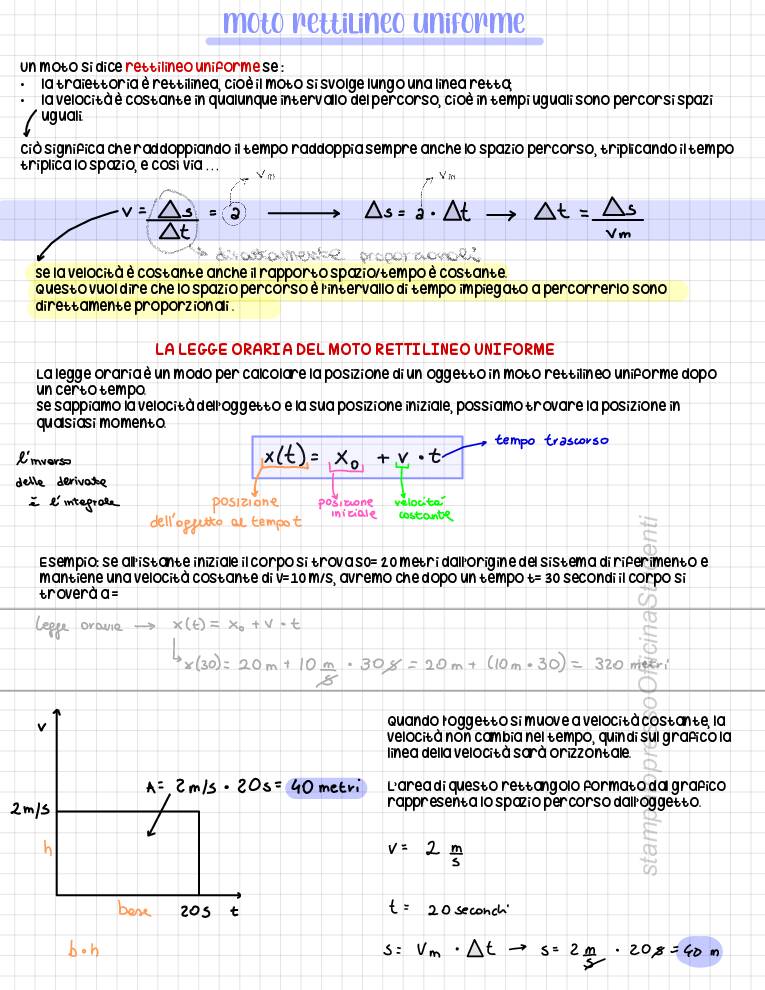 moto rettilineo uniforme
un moto si dice rettilineo uniforme se:
• la traiettoria è rettilinea, cioè il moto si svolge lungo una linea retta;
• la velocità è costante in qualunque intervallo del percorso, cioè in tempi uguali sono percorsi spazi
uguali.
ciò significa che raddoppiando il tempo raddoppia sempre anche lo spazio percorso, triplicando il tempo
triplica lo spazio, e così via ...
Vm Vm
v = Δs/Δt = a → Δs = a · Δt → Δt = Δs/Vm
direttamente proporzionali
se la velocità è costante anche il rapporto spazio/tempo è costante.
Questo vuol dire che lo spazio percorso è l'intervallo di tempo impiegato a percorrerlo sono
direttamente proporzionali.
LA LEGGE ORARIA DEL MOTO RETTILINEO UNIFORME
La legge oraria è un modo per calcolare la posizione di un oggetto in moto rettilineo uniforme dopo
un certo tempo.
se sappiamo la velocità dell'oggetto e la sua posizione iniziale, possiamo trovare la posizione in
qualsiasi momento.
x(t) = x₀ + v · t
tempo trascorso
l'inverso
delle derivate
è l'integrale
posizione
dell'oggetto al tempo t
posizione
iniziale
velocità
costante
Esempio: se all'istante iniziale il corpo si trova s0= 20 metri dall'origine del sistema di riferimento e
mantiene una velocità costante di v=10 m/s, avremo che dopo un tempo t= 30 secondi il corpo si
troverà a =
legge oraria → x(t) = x₀ + v · t
x(30) = 20 m + 10 m/s · 30 s = 20 m + (10 m · 30) = 320 metri
v
A = 2 m/s · 20 s = 40 metri
2 m/s
h
base
20 s t
b · h
Quando l'oggetto si muove a velocità costante, la
velocità non cambia nel tempo, quindi sul grafico la
linea della velocità sarà orizzontale.
L'area di questo rettangolo formato dal grafico
rappresenta lo spazio percorso dall'oggetto.
v = 2 m/s
t = 20 secondi
s = Vm · Δt → s = 2 m/s · 20 s = 40 m
stampato presso OfficinaStudenti